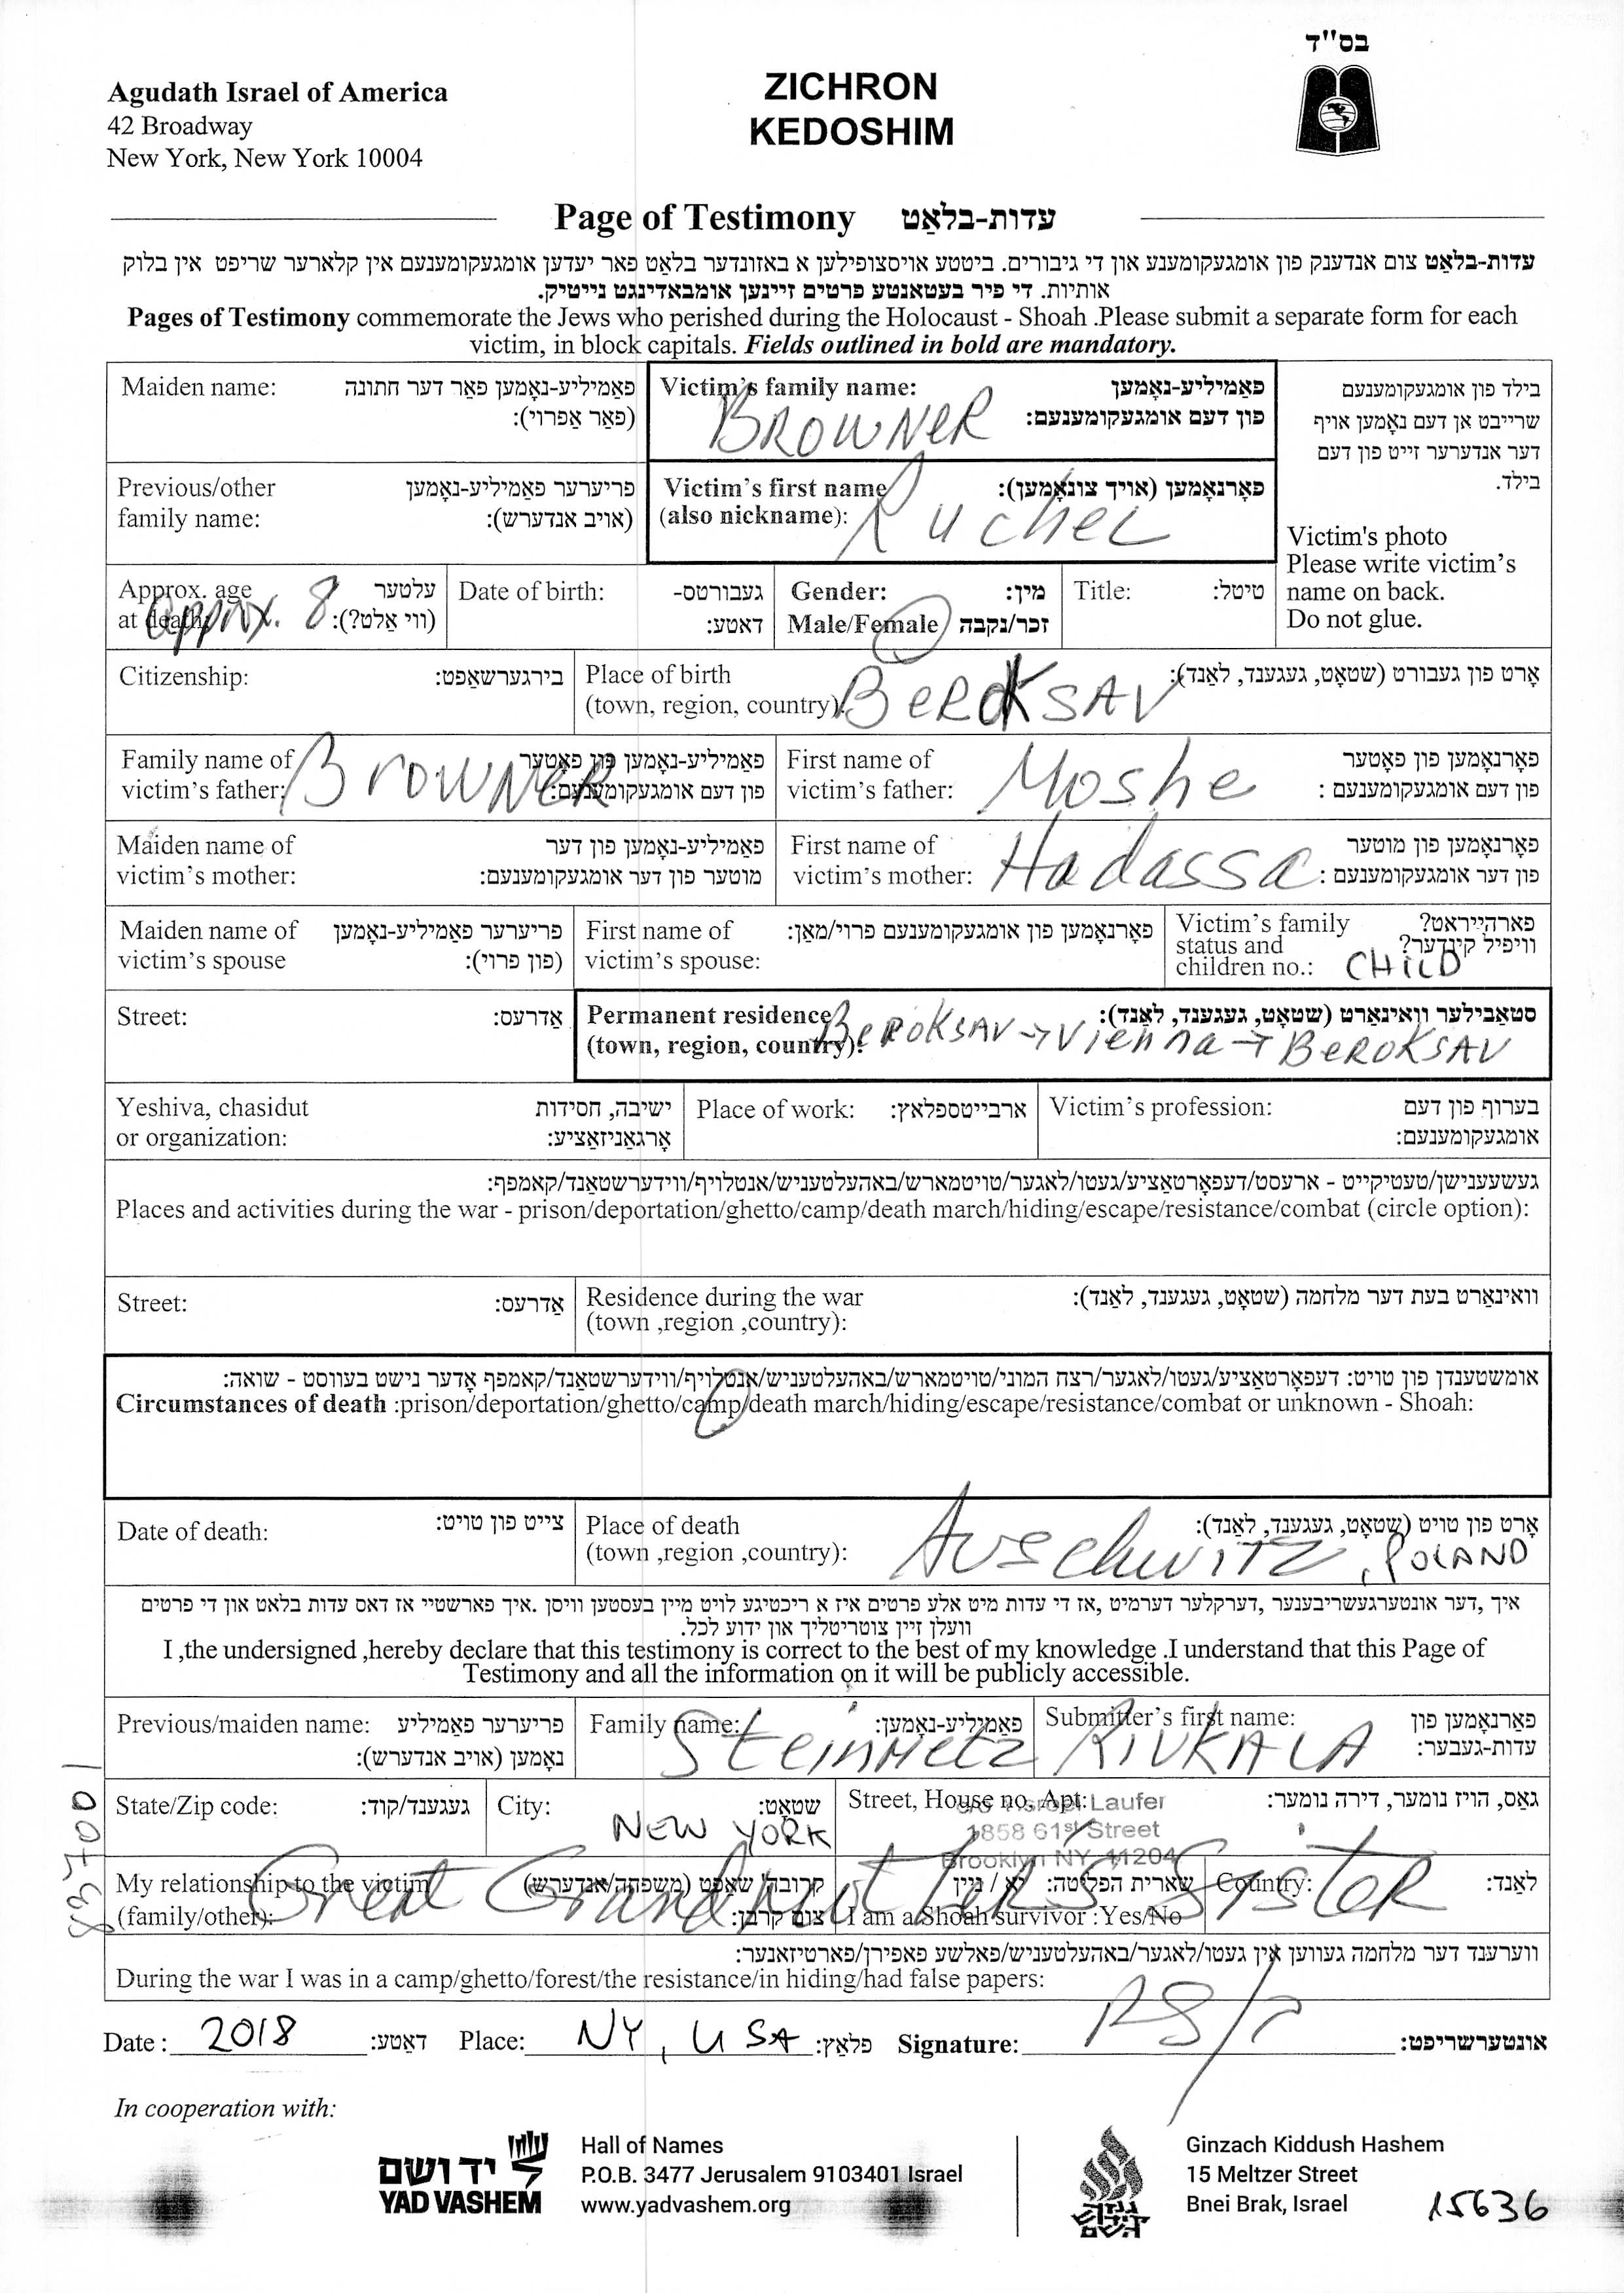 בס"ד
Agudath Israel of America
42 Broadway
New York, New York 10004
ZICHRON
KEDOSHIM
Page of Testimony עדות-בלאַט
עדות-בלאַט צום אנדענק פון אומגעקומענע און די גיבורים. ביטטע אויסצופילען א באזונדער בלאַט פאר יעדען אומגעקומענעם אין קלארער שריפט אין בלוק
אותיות. די פיר בעטאנטע פרטים זיינען אומבאדינגט נייטיק.
Pages of Testimony commemorate the Jews who perished during the Holocaust - Shoah .Please submit a separate form for each
victim, in block capitals. Fields outlined in bold are mandatory.
Maiden name: פאַמיליע-נאָמען פאַר דער חתונה
(פאַר אַפרוי):
Victim's family name: פאַמיליע-נאָמען
פון דעם אומגעקומענעם:
BROWNER
בילד פון אומגעקומענעם
שרייבט אן דעם נאָמען אויף
דער אנדערער זייט פון דעם
בילד.
Victim's photo
Please write victim's
name on back.
Do not glue.
Previous/other
family name:
פריערער פאַמיליע-נאָמען
(אויב אנדערש):
Victim's first name
(also nickname):
פאָרנאָמען (אויך צונאָמען):
Ruchel
Approx. age
at death:
עלטער
(ווי אַלט?):
Approx. 8
Date of birth: געבורטס-
דאַטע:
Gender: מין:
Male/Female זכר/נקבה
Title: טיטל:
Citizenship: בירגערשאַפט:
Place of birth
(town, region, country):
אָרט פון געבורט (שטאָט, געגענד, לאַנד):
BEROKSAV
Family name of
victim's father:
פאַמיליע-נאָמען פון פאָטער
פון דעם אומגעקומענעם:
BROWNER
First name of
victim's father:
פאָרנאָמען פון פאָטער
פון דעם אומגעקומענעם :
Moshe
Maiden name of
victim's mother:
פאַמיליע-נאָמען פון דער
מוטער פון דער אומגעקומענעם:
First name of
victim's mother:
פאָרנאָמען פון מוטער
פון דער אומגעקומענעם :
Hadassa
Maiden name of
victim's spouse
פריערער פאַמיליע-נאָמען
(פון פרוי):
First name of
victim's spouse:
פאָרנאָמען פון אומגעקומענעם פרוי/מאַן:
Victim's family
status and
children no.:
פארהייראט?
וויפיל קינדער?
CHILD
Street: אַדרעס:
Permanent residence
(town, region, country):
סטאַבילער וואינאָרט (שטאָט, געגענד, לאַנד):
BEROKSAV → Vienna → BEROKSAV
Yeshiva, chasidut
or organization:
ישיבה, חסידות
אָרגאַניזאַציע:
Place of work: ארבייטספלאץ:
Victim's profession: בערוף פון דעם
אומגעקומענעם:
געשעענישן/טעטיקייט - ארעסט/דעפאָרטאַציע/געטו/לאגער/טויטמארש/באהעלטעניש/אנטלויף/ווידערשטאַנד/קאמפף:
Places and activities during the war - prison/deportation/ghetto/camp/death march/hiding/escape/resistance/combat (circle option):
Street: אַדרעס:
Residence during the war
(town ,region ,country):
וואינאַרט בעת דער מלחמה (שטאָט, געגענד, לאַנד):
אומשטענדן פון טויט: דעפאָרטאַציע/געטו/לאגער/רצח המוני/טויטמארש/באהעלטעניש/אנטלויף/ווידערשטאַנד/קאמפף אָדער נישט בעוווסט - שואה:
Circumstances of death :prison/deportation/ghetto/camp/death march/hiding/escape/resistance/combat or unknown - Shoah:
Date of death: צייט פון טויט:
Place of death
(town ,region ,country):
אָרט פון טויט (שטאָט, געגענד, לאַנד):
Auschwitz, POLAND
איך ,דער אונטערגעשריבענער ,דערקלער דערמיט ,אז די עדות מיט אלע פרטים איז א ריכטיגע לויט מיין בעסטען וויסן .איך פארשטיי אז דאס עדות בלאט און די פרטים
וועלן זיין צוטריטליך און ידוע לכל.
I ,the undersigned ,hereby declare that this testimony is correct to the best of my knowledge .I understand that this Page of
Testimony and all the information on it will be publicly accessible.
Previous/maiden name: פריערער פאַמיליע
נאָמען (אויב אנדערש):
Family name: פאַמיליע-נאָמען:
Steinmetz
Submitter's first name: פארנאָמען פון
עדות-געבער:
RIVKALA
State/Zip code: געגענד/קוד:
City: שטאָט:
NEW YORK
Street, House no, Apt: גאַס, הויז נומער, דירה נומער:
c/o Yisroel Laufer
1858 61st Street
Brooklyn NY 11204
My relationship to the victim
(family/other):
קרובה'שאפט (משפחה/אנדערש)
צום קרבן:
Great Grandmother's Sister
שארית הפליטה: יא / ניין
I am a Shoah survivor :Yes/No
Country: לאַנד:
ווערענד דער מלחמה געווען אין געטו/לאגער/באהעלטעניש/פאלשע פאפירן/פארטיזאנער:
During the war I was in a camp/ghetto/forest/the resistance/in hiding/had false papers:
Date : 2018 דאַטע: Place: NY, USA פלאַץ: Signature: אונטערשריפט:
8937001
In cooperation with:
יד ושם
YAD VASHEM
Hall of Names
P.O.B. 3477 Jerusalem 9103401 Israel
www.yadvashem.org
גנזך
קידוש
השם
Ginzach Kiddush Hashem
15 Meltzer Street
Bnei Brak, Israel
15636